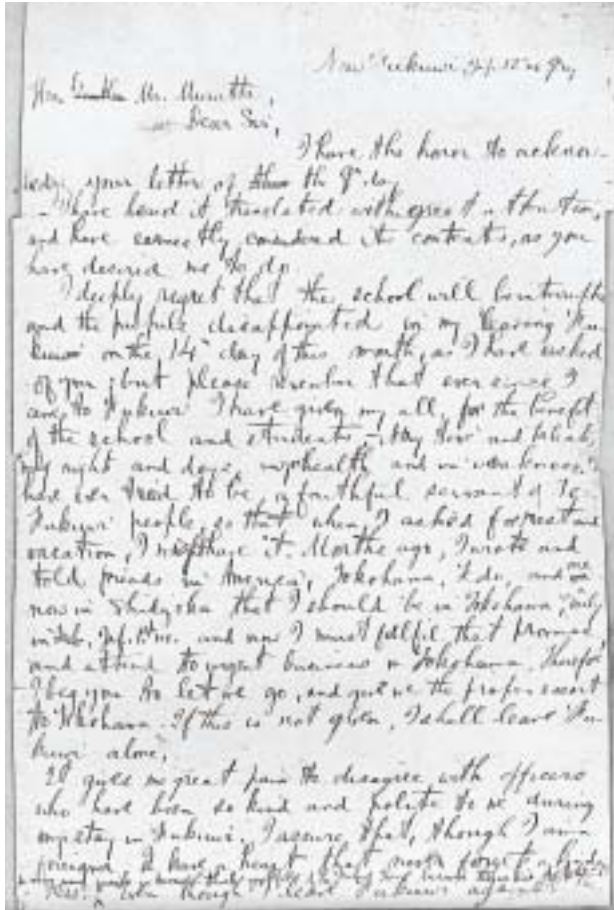 Hon. Mr. Muratta,
Dear Sir,
I have the honor to acknow-
ledge your letter of the
I have heard it translated with great attention,
and have earnestly considered its contents, as you
have desired me to do.
I deeply regret that the school will be
and the pupils disappointed in my leaving Fu-
kuwi on the 14th day of this month, as I have asked
of you; but please remember that ever since I
came to Fukuwi I have given my all, for the benefit
of the school and students, - My time and
my nights and days, in health and in weakness. I
have ever tried to be a faithful servant of
Fukuwi people, so that when I asked for rest and
vacation, I might have it. Months ago, I wrote and
told friends in America, Yokohama, Yedo, and
now in Shidzoka that I should be in Yokohama, early
in and now I must fulfil that promise,
and attend to urgent business in Yokohama. Therefore
I beg you to let me go, and give me the proper escort
to Yokohama. If this is not given, I shall leave Fu-
kuwi alone.
It gives me great pain to disagree with officers
who have been so kind and polite to me during
my stay in Fukuwi. I assure, that, though I am a
foreigner, I have a heart that never forgets
even though I leave Fukuwi